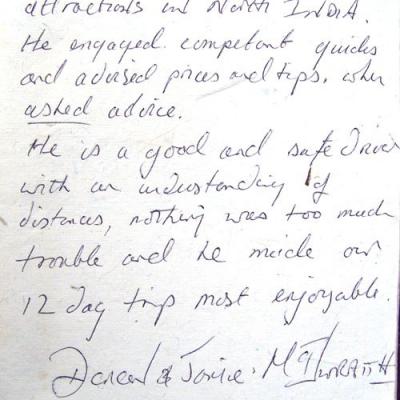 attractions in North INDIA.
He engaged competant guides
and advised prices and tips, when
asked advice.
He is a good and safe driver
with an understanding of
distances, nothing was too much
trouble and he made our
12 day trip most enjoyable.
&